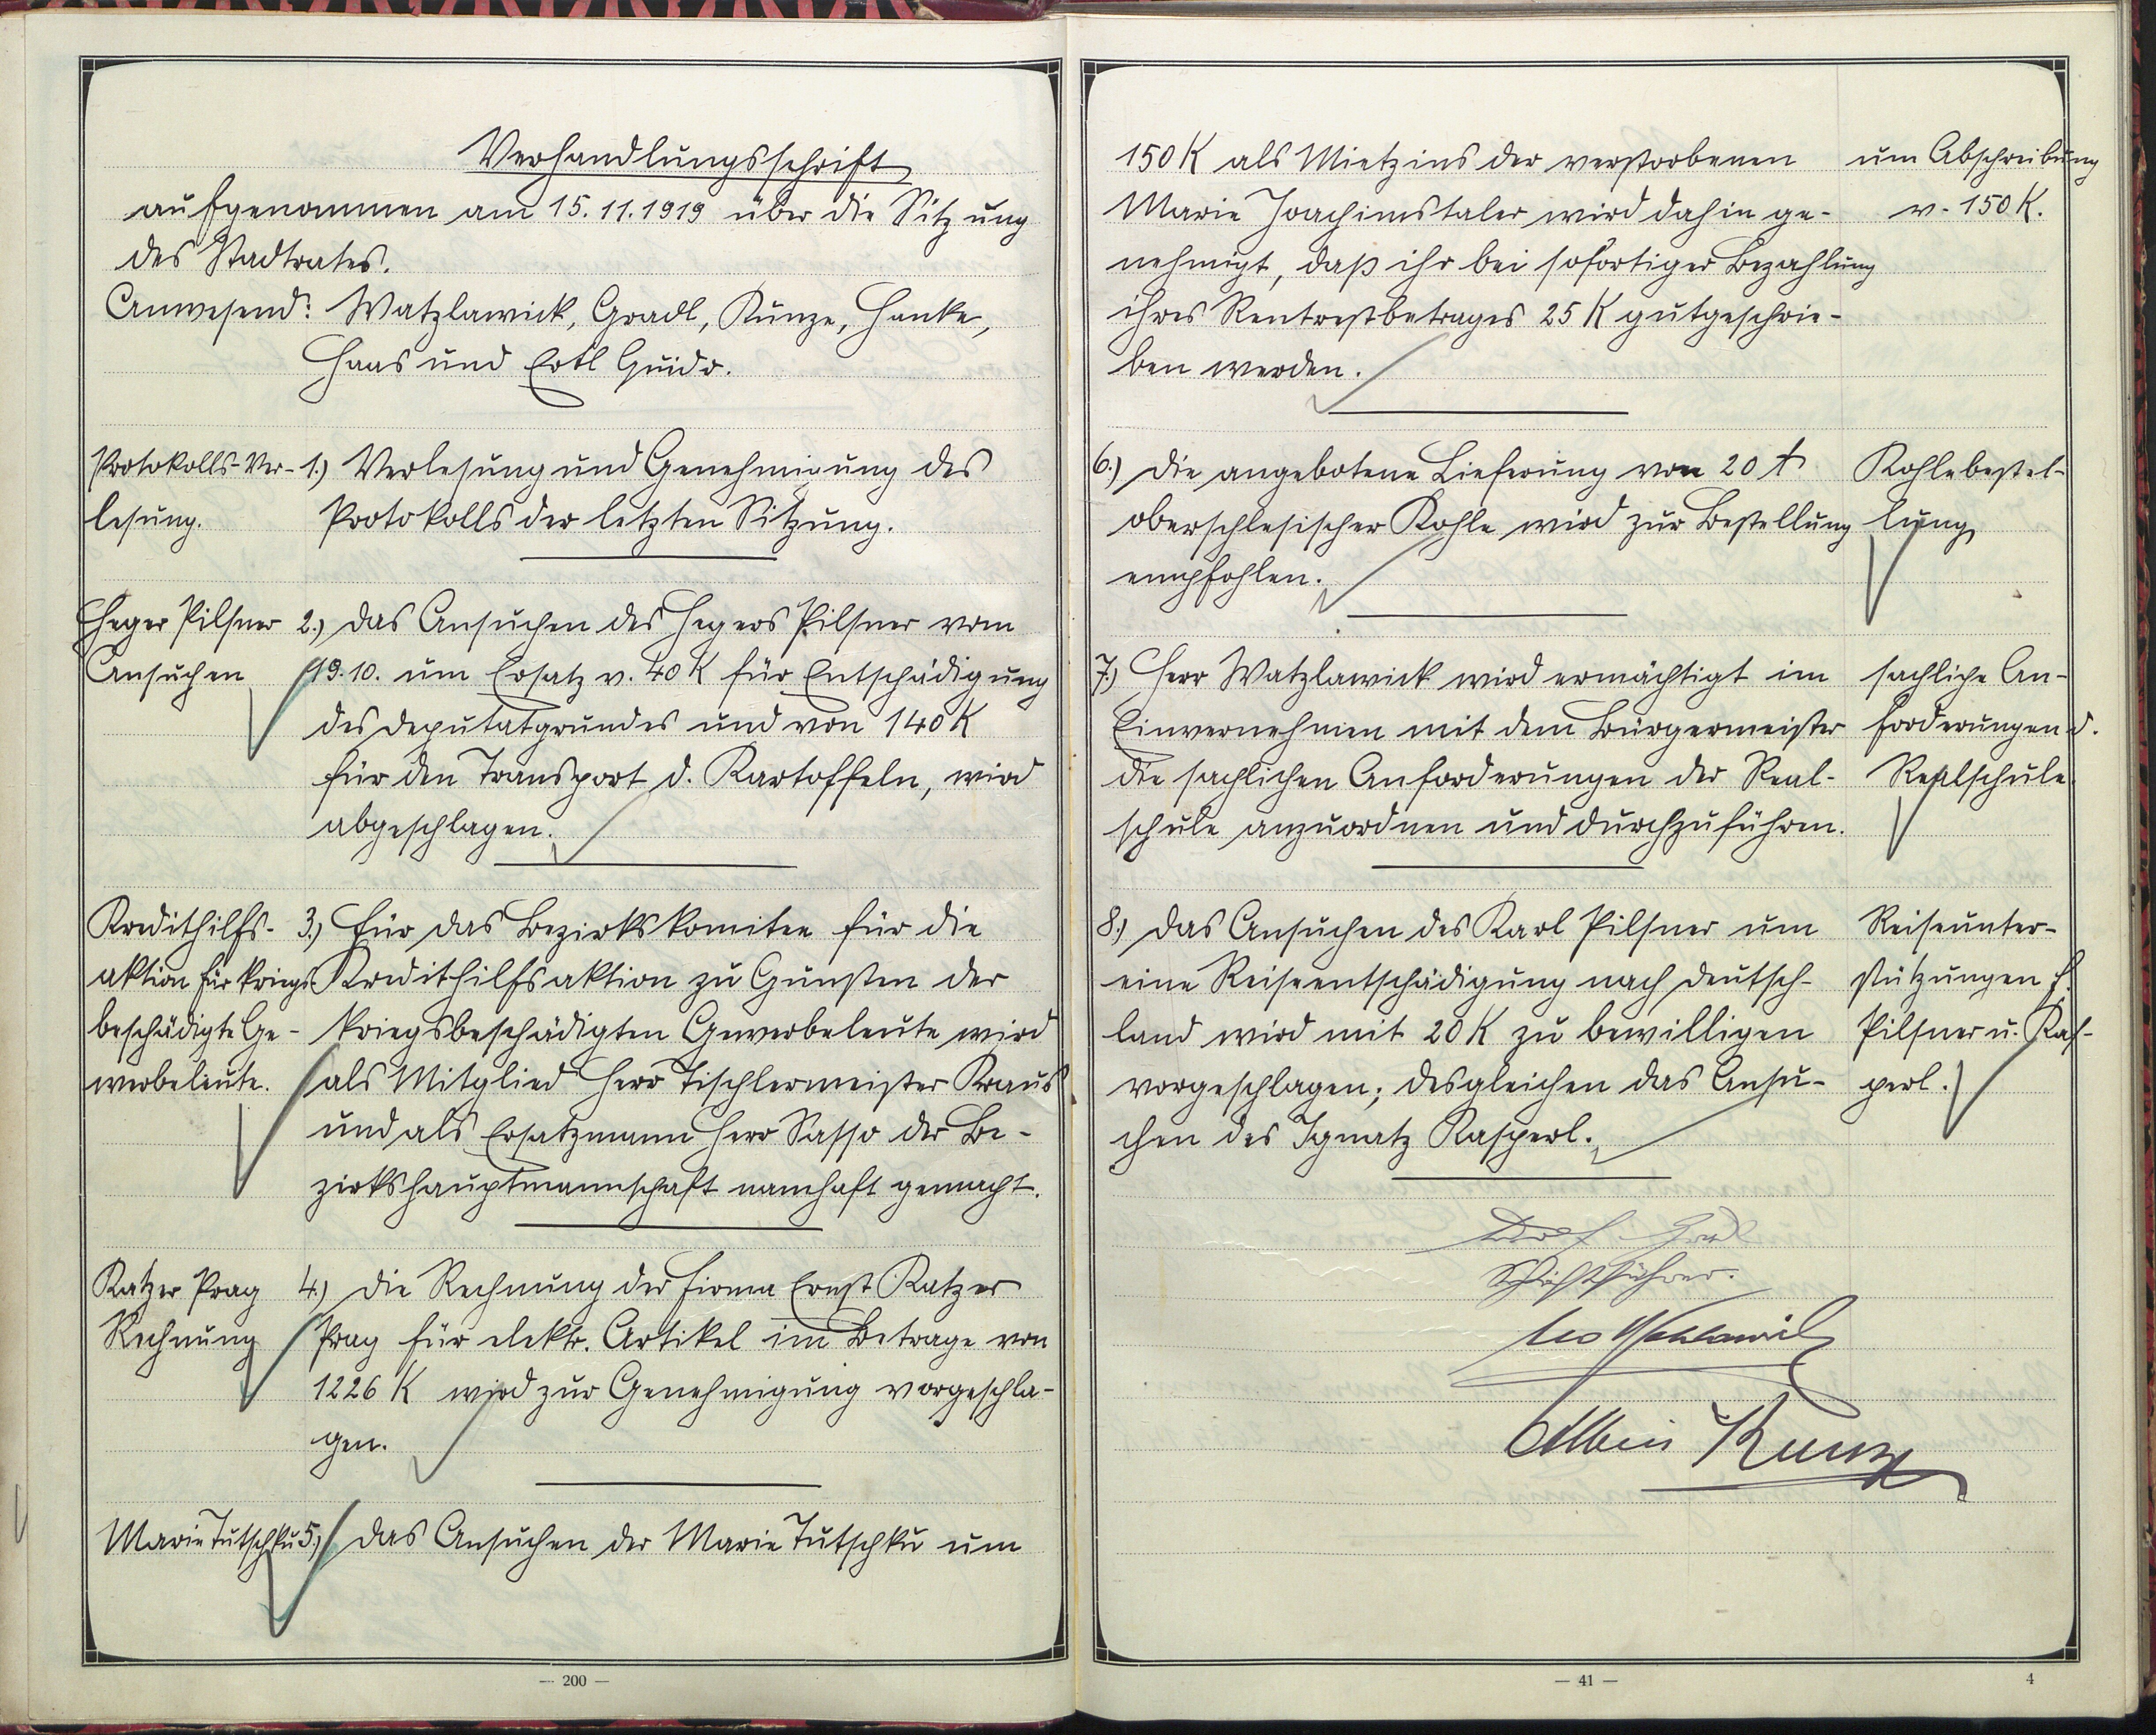 Verhandlungsschrift
aufgenommen am 15.11.1919 über die Sitzung
des Stadtrates.
Anwesend: Watzlawick, Gradl, Kunze, Hanke,
Haas und Ertl Guido.
Protokolls-Ver-
lesung.
1.) Verlesung und Genehmigung des
Protokolls der letzten Sitzung.
Heger Pilsner
Ansuchen
2.) Das Ansuchen des Hegers Pilsner vom
19.10. um Ersatz v. 40 K für Entschädigung
des Deputatgrundes und von 140 K
für den Transport d. Kartoffeln, wird
abgeschlagen.
Kredithilfs-
aktion für Kriegs-
beschädigte Ge-
werbeleute.
3.) Für das Bezirkskomitee für die
Kredithilfsaktion zu Gunsten der
kriegsbeschädigten Gewerbeleute wird
als Mitglied Herr Tischlermeister Kraus
und als Ersatzmann Herr Sasso der Be-
zirkshauptmannschaft namhaft gemacht.
Katzer Prag
Rechnung
4.) Die Rechnung der Firma Ernst Katzer
Prag für elektr. Artikel im Betrage von
1226 K wird zur Genehmigung vorgeschla-
gen.
Marie Tutschku
5.) Das Ansuchen der Marie Tutschku um
— 200 —
150 K als Mietzins der verstorbenen
Marie Joachimstaler wird dahin ge-
nehmigt, daß ihr bei sofortiger Bezahlung
ihres Rentrestbetrages 25 K gutgeschrie-
ben werden.
um Abschreibung
v. 150 K.
6.) Die angebotene Lieferung von 20 t
oberschlesischer Kohle wird zur Bestellung
empfohlen.
Kohlebestel-
lung
7.) Herr Watzlawick wird ermächtigt im
Einvernehmen mit dem Bürgermeister
die sachlichen Anforderungen der Real-
schule anzuordnen und durchzuführen.
sachliche An-
forderungen d.
Realschule.
8.) Das Ansuchen des Karl Pilsner um
eine Reiseentschädigung nach Deutsch-
land wird mit 20 K zu bewilligen
vorgeschlagen; desgleichen das Ansu-
chen des Ignatz Kasperl.
Reiseunter-
stützungen f.
Pilsner u. Kas-
perl.
Schriftführer.
Albin Kunze
— 41 —
4